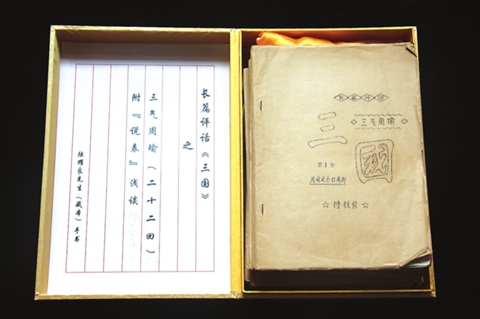 长篇评话《三国》
之
三气周瑜(二十二回)
附『说表』浅谈
陆耀良先生(藏本)手书
长篇评话
三气周瑜
三國
第1册